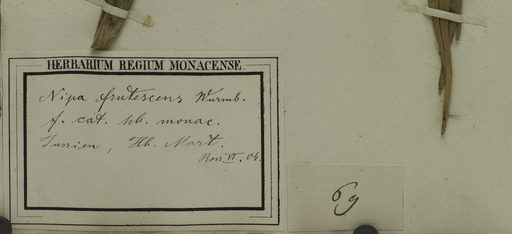 HERBARIUM REGIUM MONACENSE.
Nipa frutescens Wurmb.
f. cat. hb. monac.
Indien, Hb. Mart.
VI. 04.
69